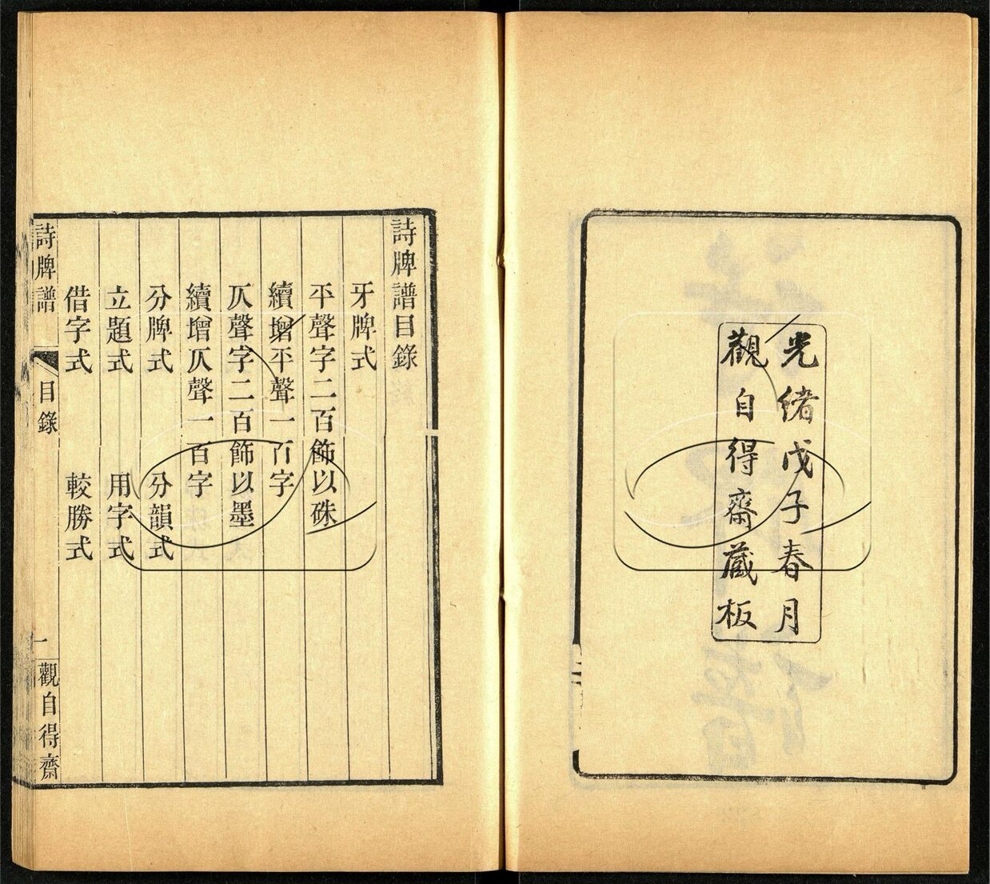 光緒戊子春月
觀自得齋藏板
詩牌譜目錄
牙牌式
平聲字二百飾以硃
續增平聲一百字
仄聲字二百飾以墨
續增仄聲一百字
分牌式 分韻式
立題式 用字式
借字式 較勝式
詩牌譜 目錄 一 觀自得齋